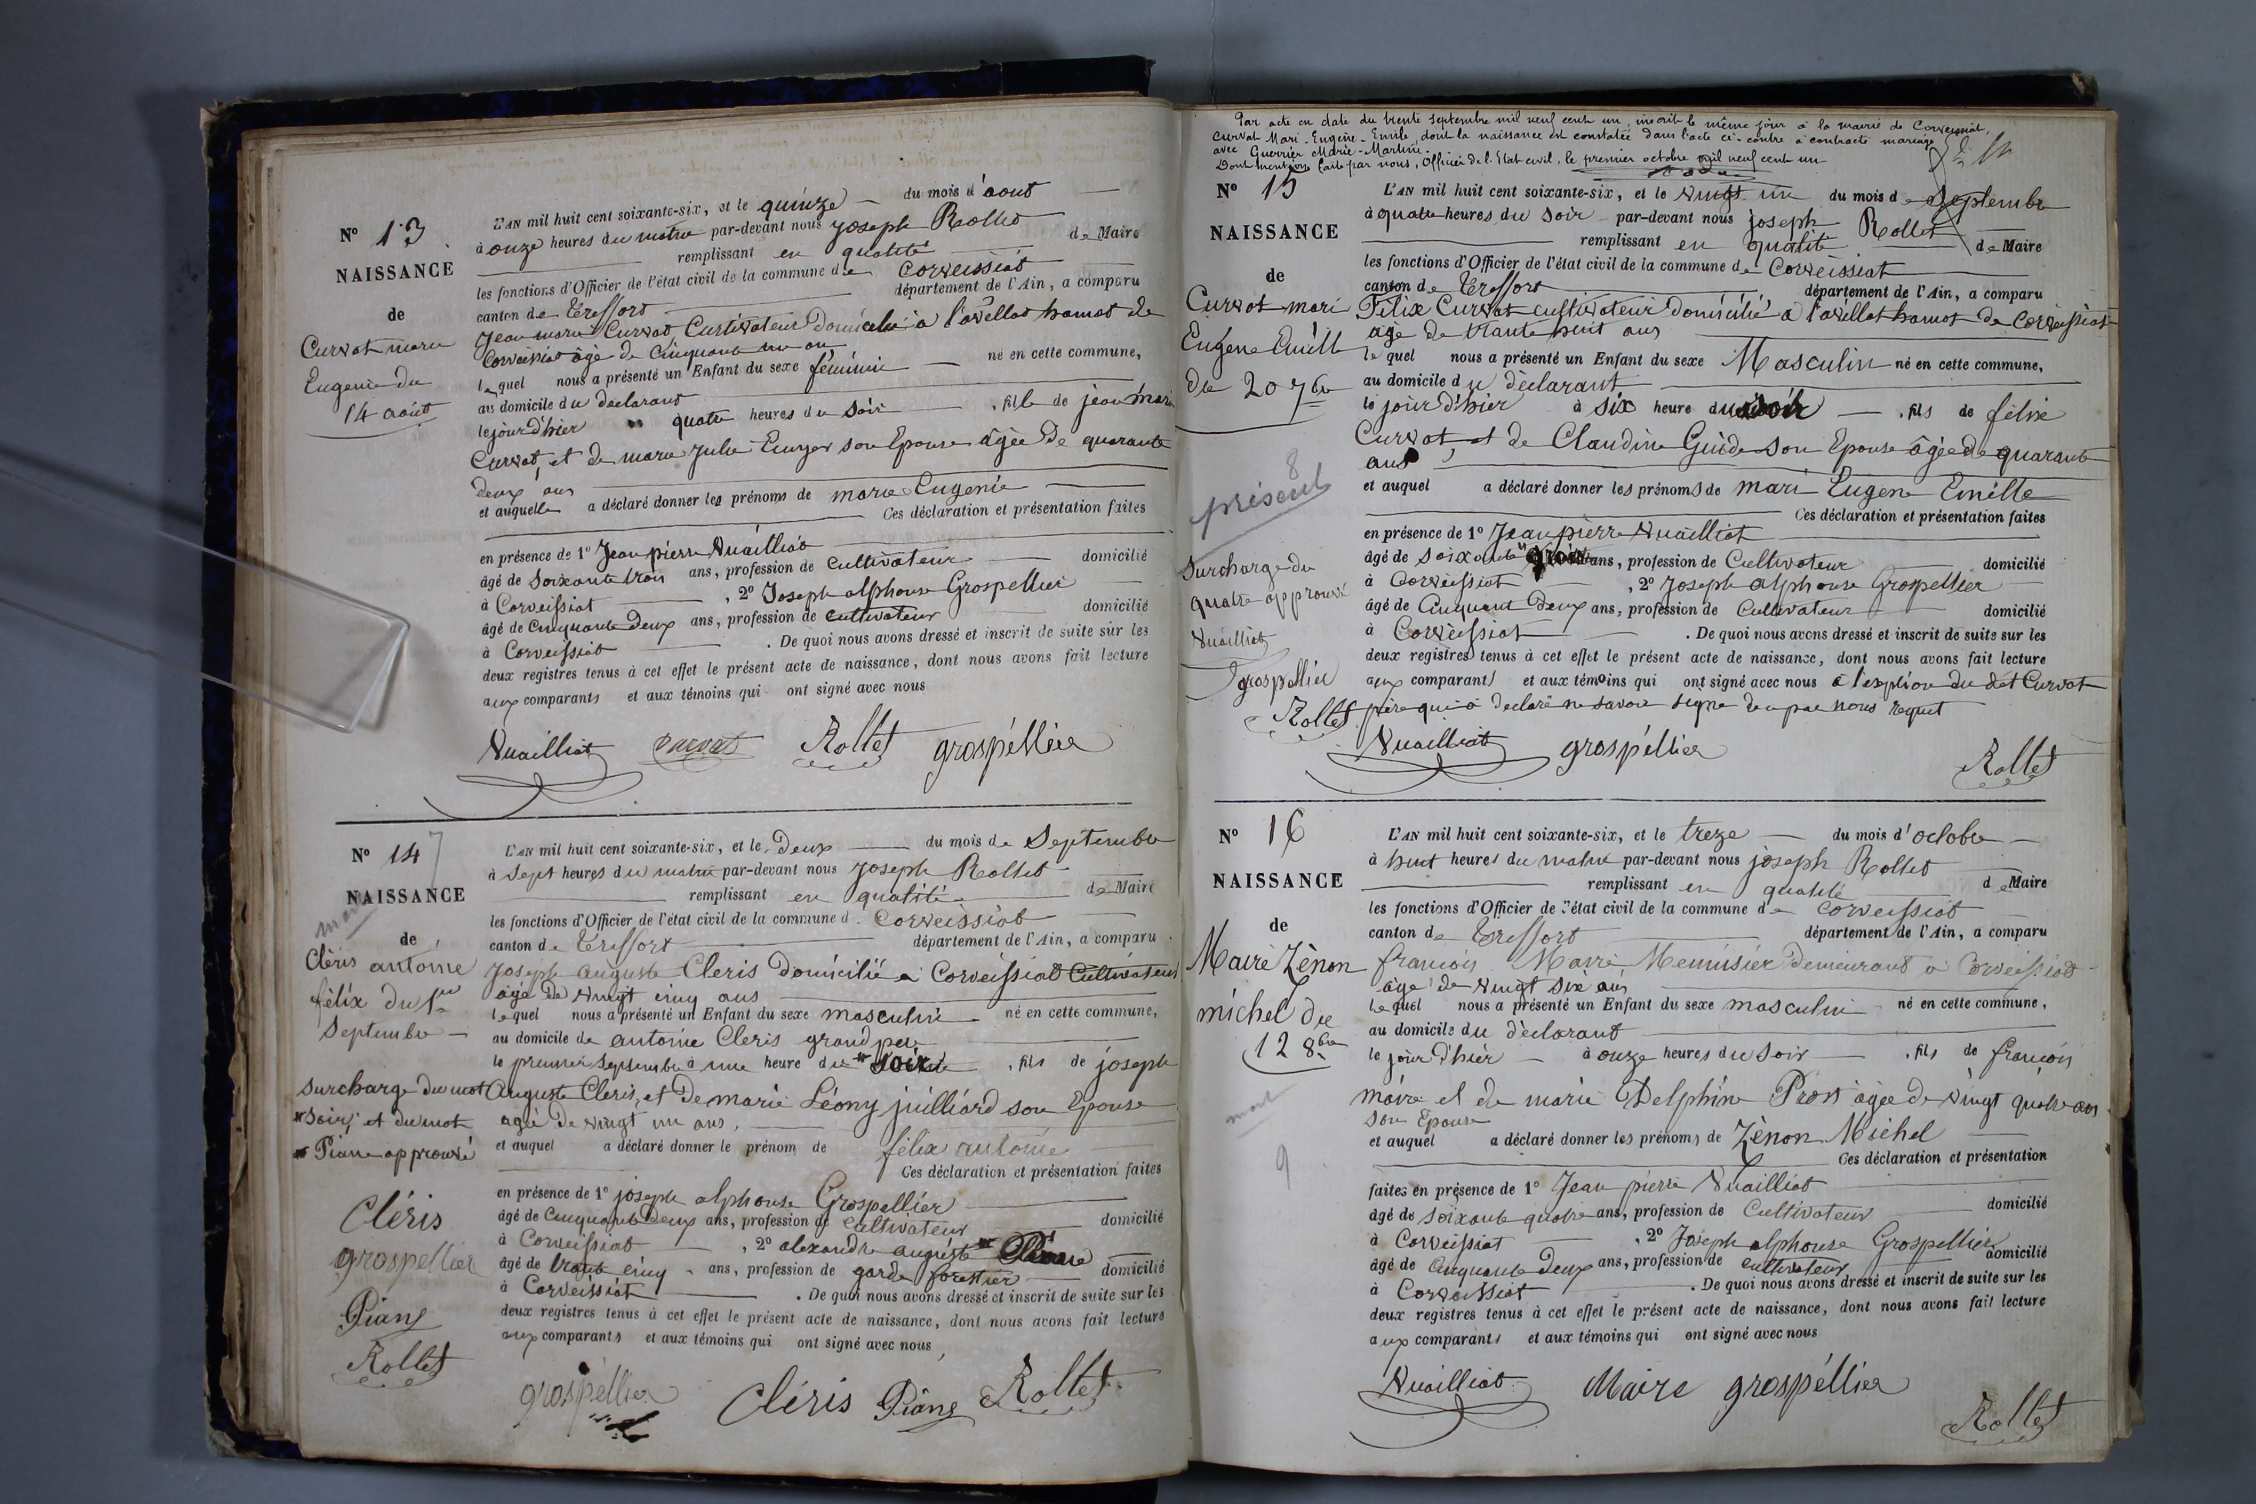 N° 13
NAISSANCE
de
Curvat marie
Eugenie du
14 août
L'AN mil huit cent soixante-six, et le quinze du mois d'aout
à onze heures du matin par-devant nous joseph Rollet
remplissant en qualité de Maire
les fonctions d'Officier de l'état civil de la commune de Corveissiat
canton de Treffort département de l'Ain, a comparu
Jean marie Curvat Cultivateur domicilié à l'avellas hamot de
Corveissiat âgé de Cinquante un an
lequel nous a présenté un Enfant du sexe féminin né en cette commune,
au domicile du déclarant
le jour d'hier à quatre heures du soir , fille de jean marie
Curvat, et de marie julie Euvger son Epouse âgée de quarante
deux ans
et auquelle a déclaré donner les prénoms de marie Eugenie
Ces déclaration et présentation faites
en présence de 1° Jean pierre Vuailliat
âgé de soixante trois ans, profession de cultivateur domicilié
à Corveissiat , 2° Joseph alphonse Grospellier
âgé de cinquante deux ans, profession de cultivateur domicilié
à Corveissiat . De quoi nous avons dressé et inscrit de suite sur les
deux registres tenus à cet effet le présent acte de naissance, dont nous avons fait lecture
aux comparants et aux témoins qui ont signé avec nous
Vuailliat Curvat Rollet grospéllier
N° 14
NAISSANCE
mort
de
Cléris antoine
félix du 1er
Septembre
surcharge du mot
soir, et du mot
Piane approuvé
Cléris
grospellier
Piane
Rollet
L'AN mil huit cent soixante-six, et le Deux du mois de Septembre
à sept heures du matin par-devant nous joseph Rollet
remplissant en qualité de Maire
les fonctions d'Officier de l'état civil de la commune d Corveissiat
canton de Treffort département de l'Ain, a comparu
Joseph auguste Cleris domicilié à Corveissiat Cultivateur
âgé de vingt cinq ans
lequel nous a présenté un Enfant du sexe masculin né en cette commune,
au domicile de antoine Cleris grand pere
le premier septembre à une heure du soir , fils de joseph
Auguste Cleris, et de marie Léony juilliard son Epouse
agée de vingt un ans,
et auquel a déclaré donner le prénom de félix antoine
Ces déclaration et présentation faites
en présence de 1° joseph alphonse Grospellier
âgé de cinquante deux ans, profession de cultivateur domicilié
à Corveissiat , 2° alexandre auguste Piane
âgé de trente cinq ans, profession de garde forestier domicilié
à Corveissiat . De quoi nous avons dressé et inscrit de suite sur les
deux registres tenus à cet effet le présent acte de naissance, dont nous avons fait lecture
aux comparants et aux témoins qui ont signé avec nous
grospéllier Cléris Piane Rollet
Par acte en date du trente septembre mil neuf cent un, inscrit le même jour à la mairie de Corveissiat,
Curvat Mari-Eugène-Emile, dont la naissance est constatée dans l'acte ci-contre a contracté mariage
avec Guerrier Marie-Martine.
Dont mention faite par nous, Officier de l'Etat civil, le premier octobre mil neuf cent un
N° 15
NAISSANCE
de
Curvat mari
Eugene Emille
du 20 7bre
8
présent
Surcharge du
quatre approuvé
Vuailliat
grospellier
Rollet
L'AN mil huit cent soixante-six, et le vingt un du mois de septembre
à quatre heures du soir par-devant nous joseph Rollet
remplissant en qualité de Maire
les fonctions d'Officier de l'état civil de la commune de Corveissiat
canton de Treffort département de l'Ain, a comparu
Félix Curvat cultivateur domicilié à l'avellat hamot de Corveissiat
age de trante huit ans
lequel nous a présenté un Enfant du sexe Masculin né en cette commune,
au domicile du déclarant
le jour d'hier à six heure du soir , fils de félix
Curvat, et de Claudine Guide son Epouse âgée de quarante
ans
et auquel a déclaré donner les prénoms de mari Eugene Emille
Ces déclaration et présentation faites
en présence de 1° Jean pierre Vuailliat
âgé de soixante ans, profession de Cultivateur domicilié
à Corveissiat , 2° Joseph alphonse Grospellier
âgé de Cinquant Deux ans, profession de cultivateur domicilié
à Corveissiat . De quoi nous avons dressé et inscrit de suite sur les
deux registres tenus à cet effet le présent acte de naissance, dont nous avons fait lecture
aux comparants et aux témoins qui ont signé avec nous à l'exption du dit Curvat
père qui a declaré ne savoir signe de par nous requit
Vuailliat grospéllier Rollet
N° 16
NAISSANCE
de
Maire Zènon
michel du
12 8bre
mort
9
L'AN mil huit cent soixante-six, et le treze du mois d'octobre
à huit heures du matin par-devant nous joseph Rollet
remplissant en qualité de Maire
les fonctions d'Officier de l'état civil de la commune de Corveissiat
canton de Treffort département de l'Ain, a comparu
françois Maire Menuisier Demeurant à Corveissiat
âgé de vingt six ans
lequel nous a présenté un Enfant du sexe masculin né en cette commune,
au domicile du déclarant
le jour d'hier à onze heures du soir , fils de françois
maire et de marie Delphine Prost âgée de vingt quatre ans
son Epouse
et auquel a déclaré donner les prénoms de Zènon Michel
Ces déclaration et présentation
faites en présence de 1° Jean pierre Vuailliat
âgé de soixante quatre ans, profession de Cultivateur domicilié
à Corveissiat , 2° Joseph alphonse Grospellier
âgé de cinquante Deux ans, profession de cultivateur domicilié
à Corveissiat . De quoi nous avons dressé et inscrit de suite sur les
deux registres tenus à cet effet le présent acte de naissance, dont nous avons fait lecture
aux comparants et aux témoins qui ont signé avec nous
Vuailliat Maire grospéllier Rollet